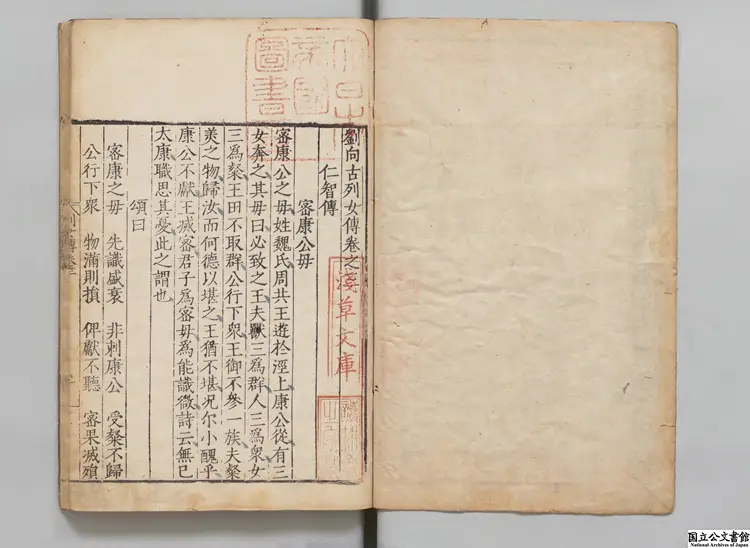 劉向古列女傳卷之
仁智傳
密康公母
密康公之母姓魏氏周共王遊於涇上康公從有三
女奔之其母曰必致之王夫獸三為群人三為衆女
三為粲王田不取群公行下衆王御不參一族夫粲
美之物歸汝而何德以堪之王猶不堪况尔小醜乎
康公不獻王滅密君子為密母為能識微詩云無已
太康職思其憂此之謂也
頌曰
密康之母 先識盛衰 非刺康公 受粲不歸
公行下衆 物滿則損 俾獻不聽 密果滅殞
帝國
圖書
淺草文庫
国立公文書館
National Archives of Japan